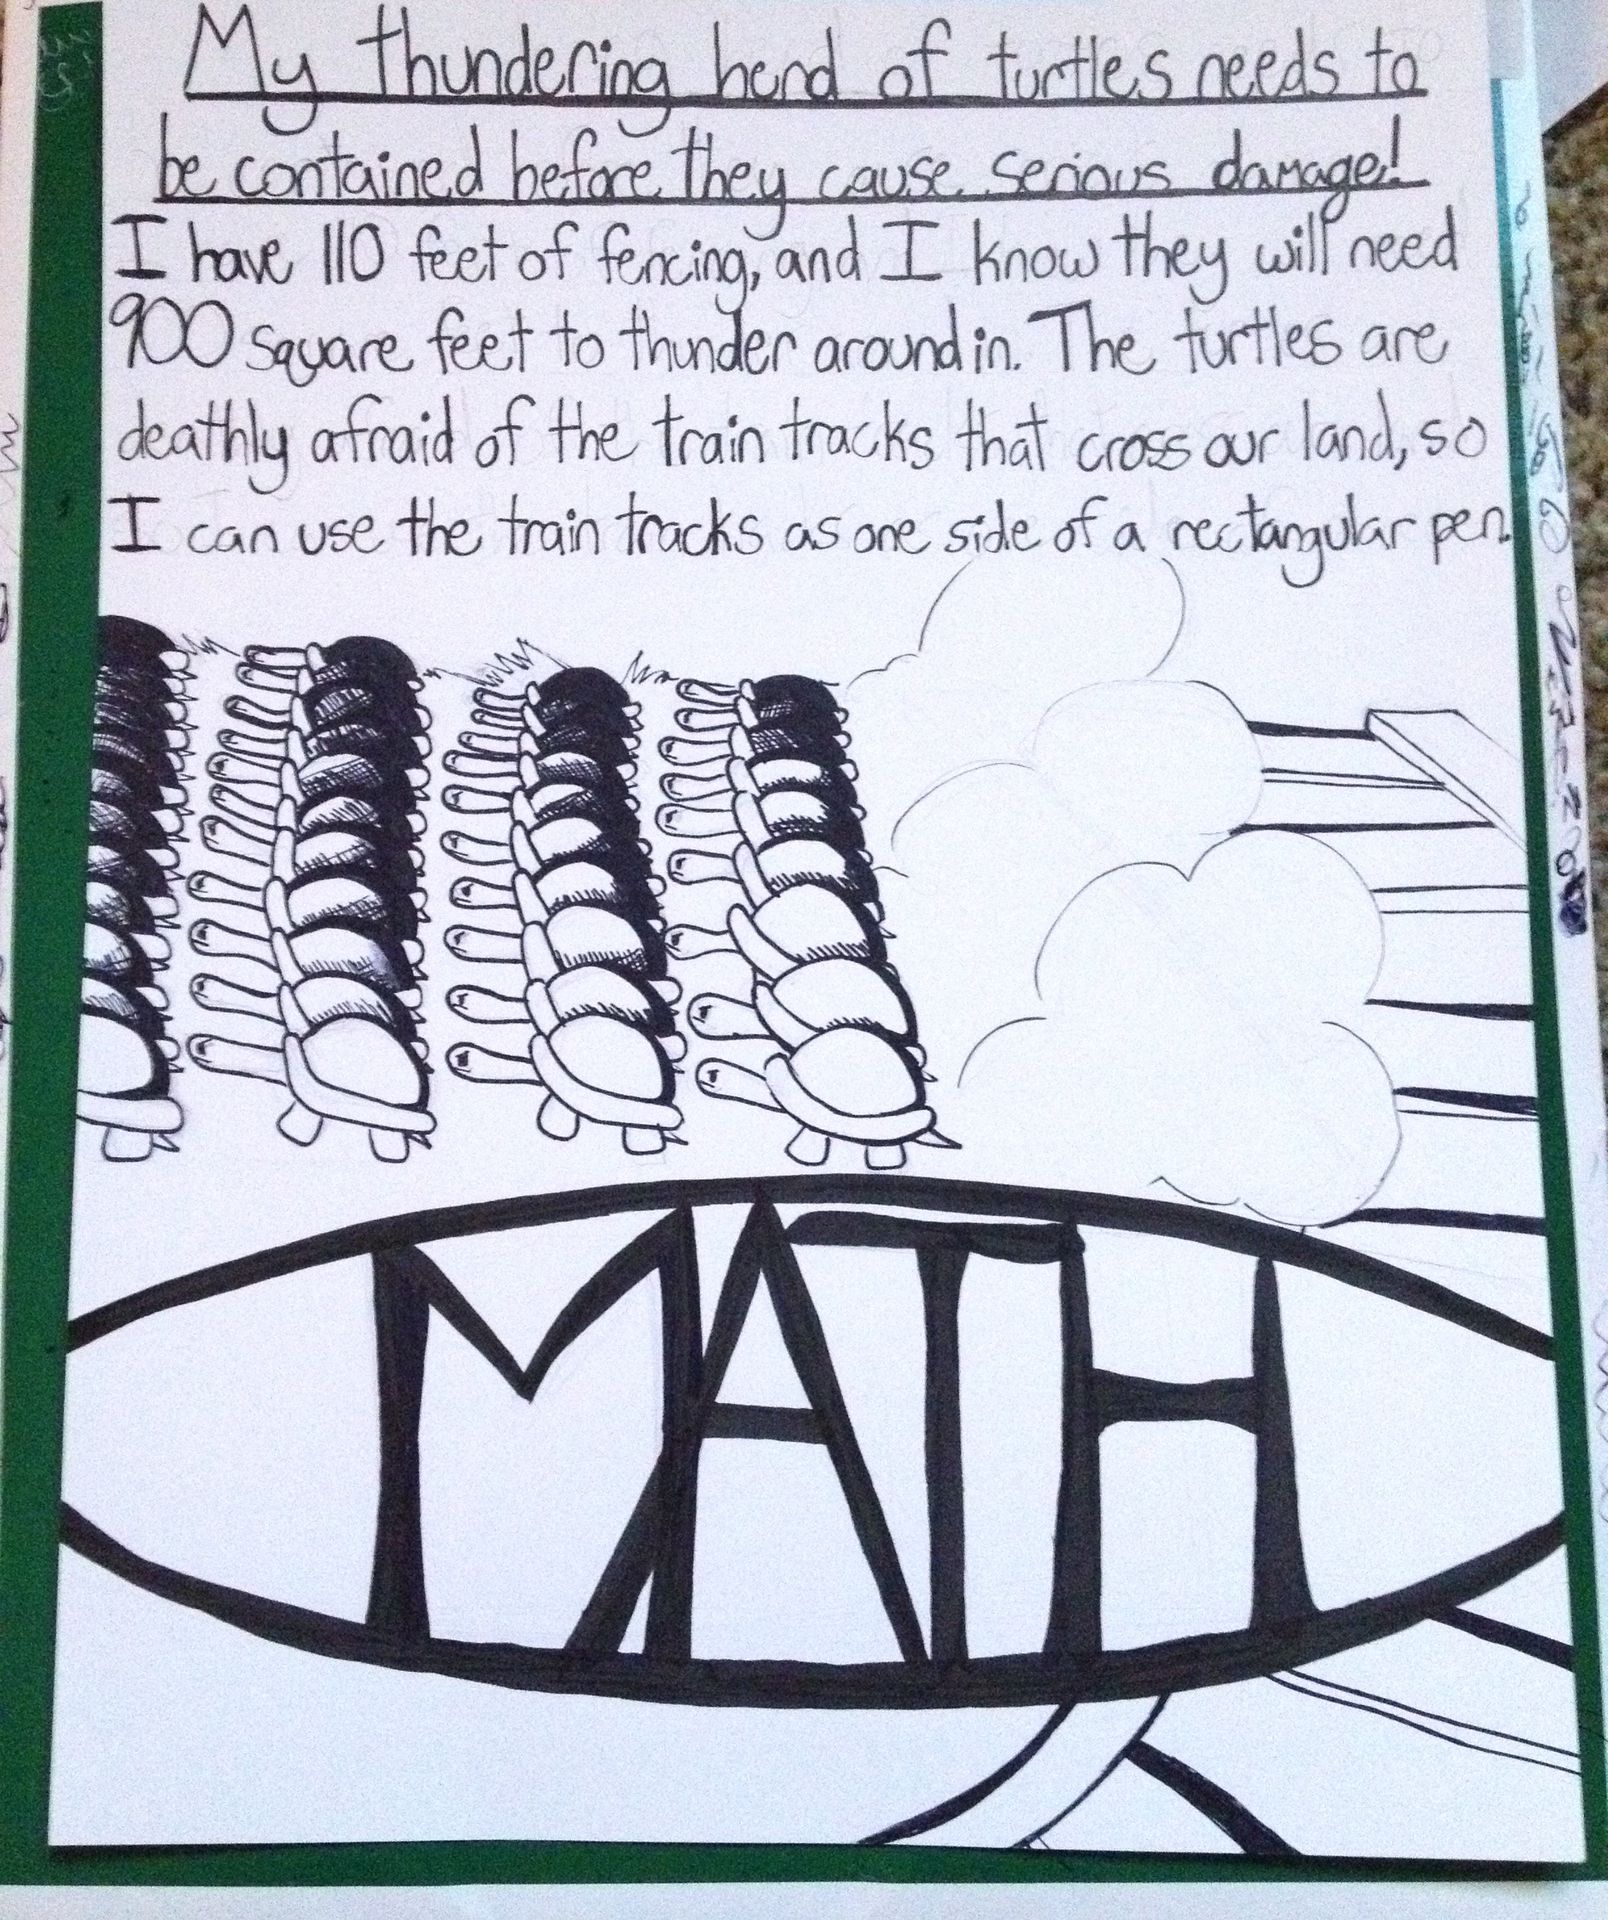 My thundering herd of turtles needs to
be contained before they cause serious damage!
I have 110 feet of fencing, and I know they will need
900 square feet to thunder around in. The turtles are
deathly afraid of the train tracks that cross our land, so
I can use the train tracks as one side of a rectangular pen.
MATH